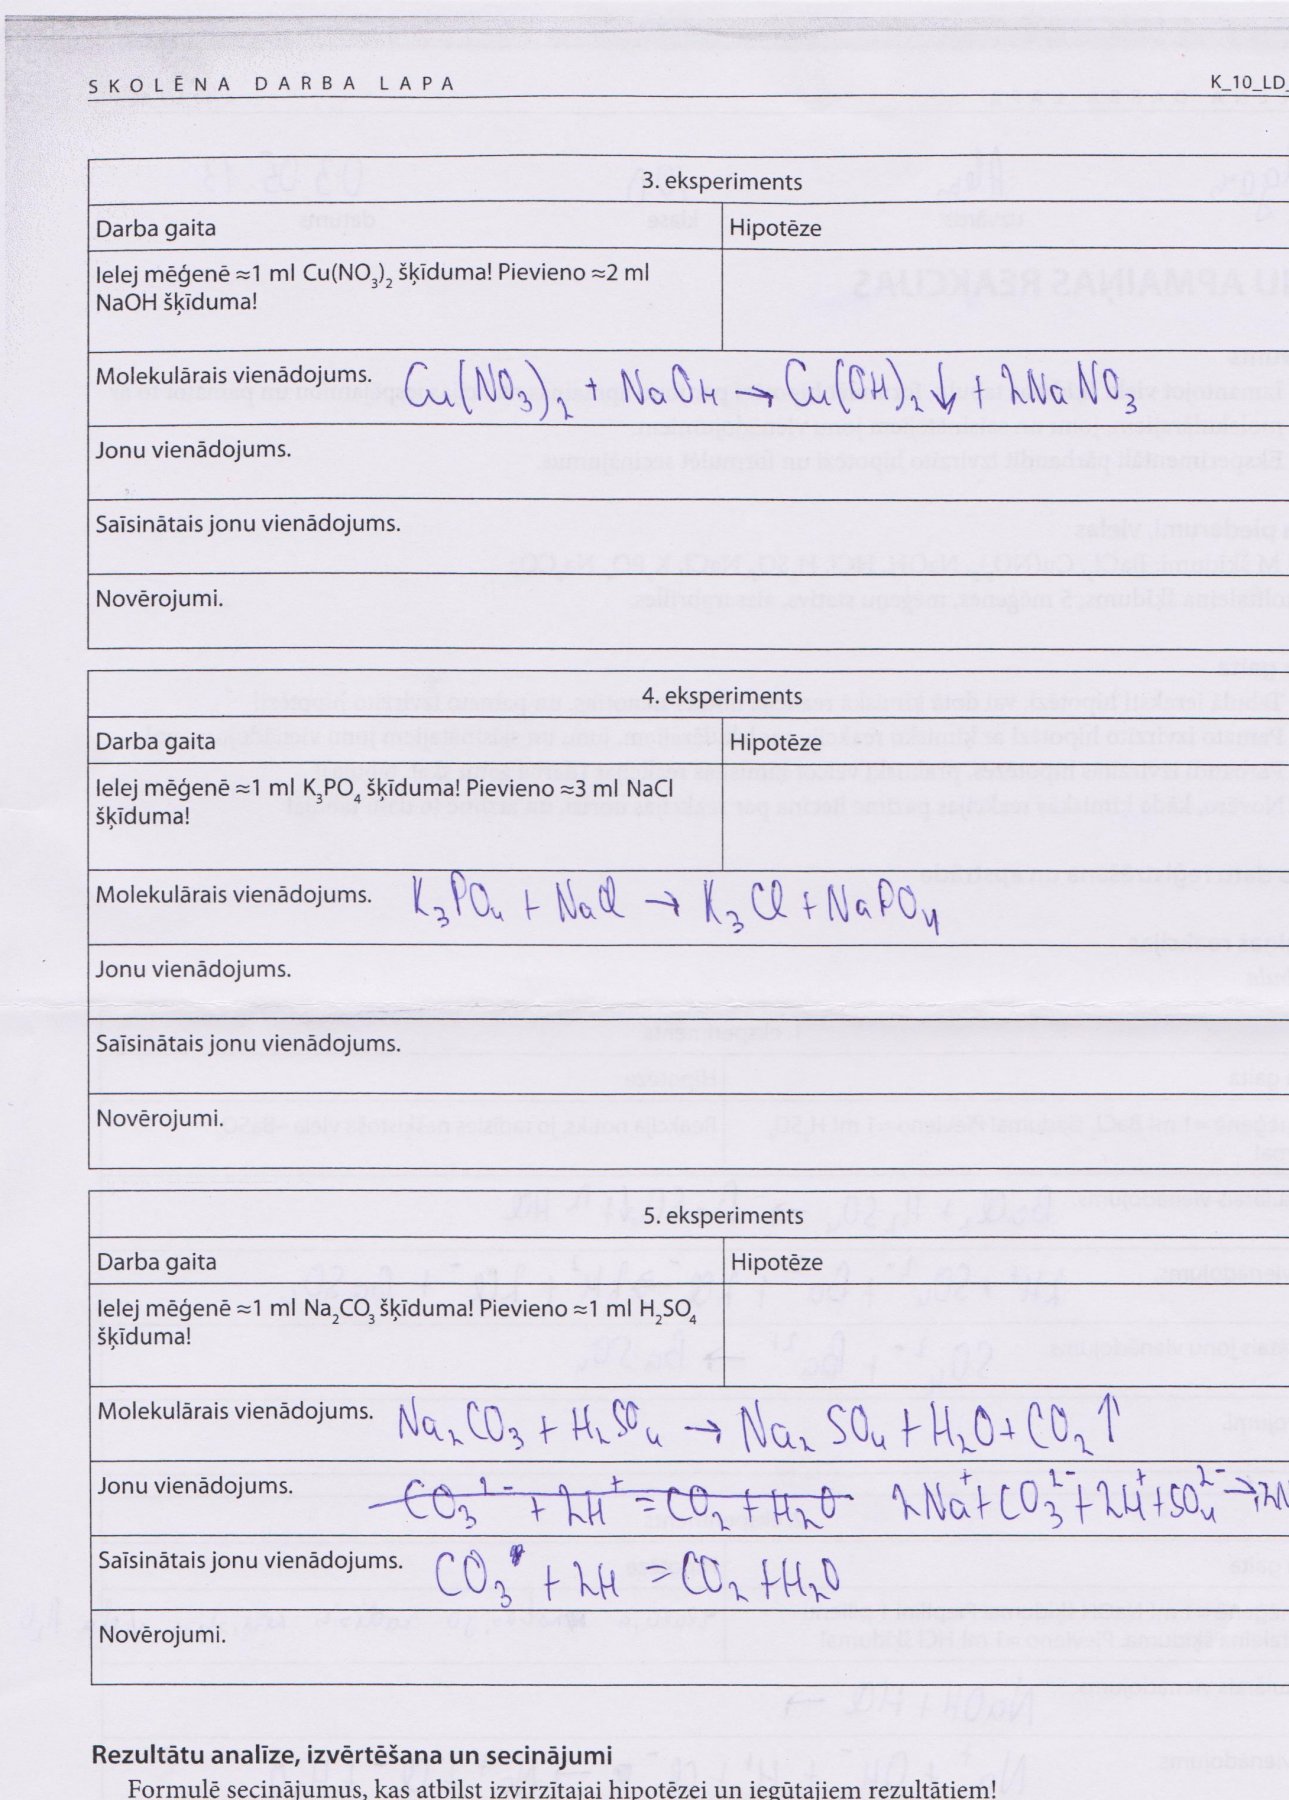 SKOLĒNA DARBA LAPA K_10_LD_
3. eksperiments
Darba gaita Hipotēze
Ielej mēģenē ≈1 ml Cu(NO₃)₂ šķīduma! Pievieno ≈2 ml
NaOH šķīduma!
Molekulārais vienādojums. Cu(NO₃)₂ + NaOH → Cu(OH)₂ ↓ + 2NaNO₃
Jonu vienādojums.
Saīsinātais jonu vienādojums.
Novērojumi.
4. eksperiments
Darba gaita Hipotēze
Ielej mēģenē ≈1 ml K₃PO₄ šķīduma! Pievieno ≈3 ml NaCl
šķīduma!
Molekulārais vienādojums. K₃PO₄ + NaCl → K₃Cl + NaPO₄
Jonu vienādojums.
Saīsinātais jonu vienādojums.
Novērojumi.
5. eksperiments
Darba gaita Hipotēze
Ielej mēģenē ≈1 ml Na₂CO₃ šķīduma! Pievieno ≈1 ml H₂SO₄
šķīduma!
Molekulārais vienādojums. Na₂CO₃ + H₂SO₄ → Na₂SO₄ + H₂O + CO₂ ↑
Jonu vienādojums. CO₃²⁻ + 2H⁺ = CO₂ + H₂O 2Na⁺ + CO₃²⁻ + 2H⁺ + SO₄²⁻ → 2N
Saīsinātais jonu vienādojums. CO₃ + 2H = CO₂ + H₂O
Novērojumi.
Rezultātu analīze, izvērtēšana un secinājumi
Formulē secinājumus, kas atbilst izvirzītajai hipotēzei un iegūtajiem rezultātiem!